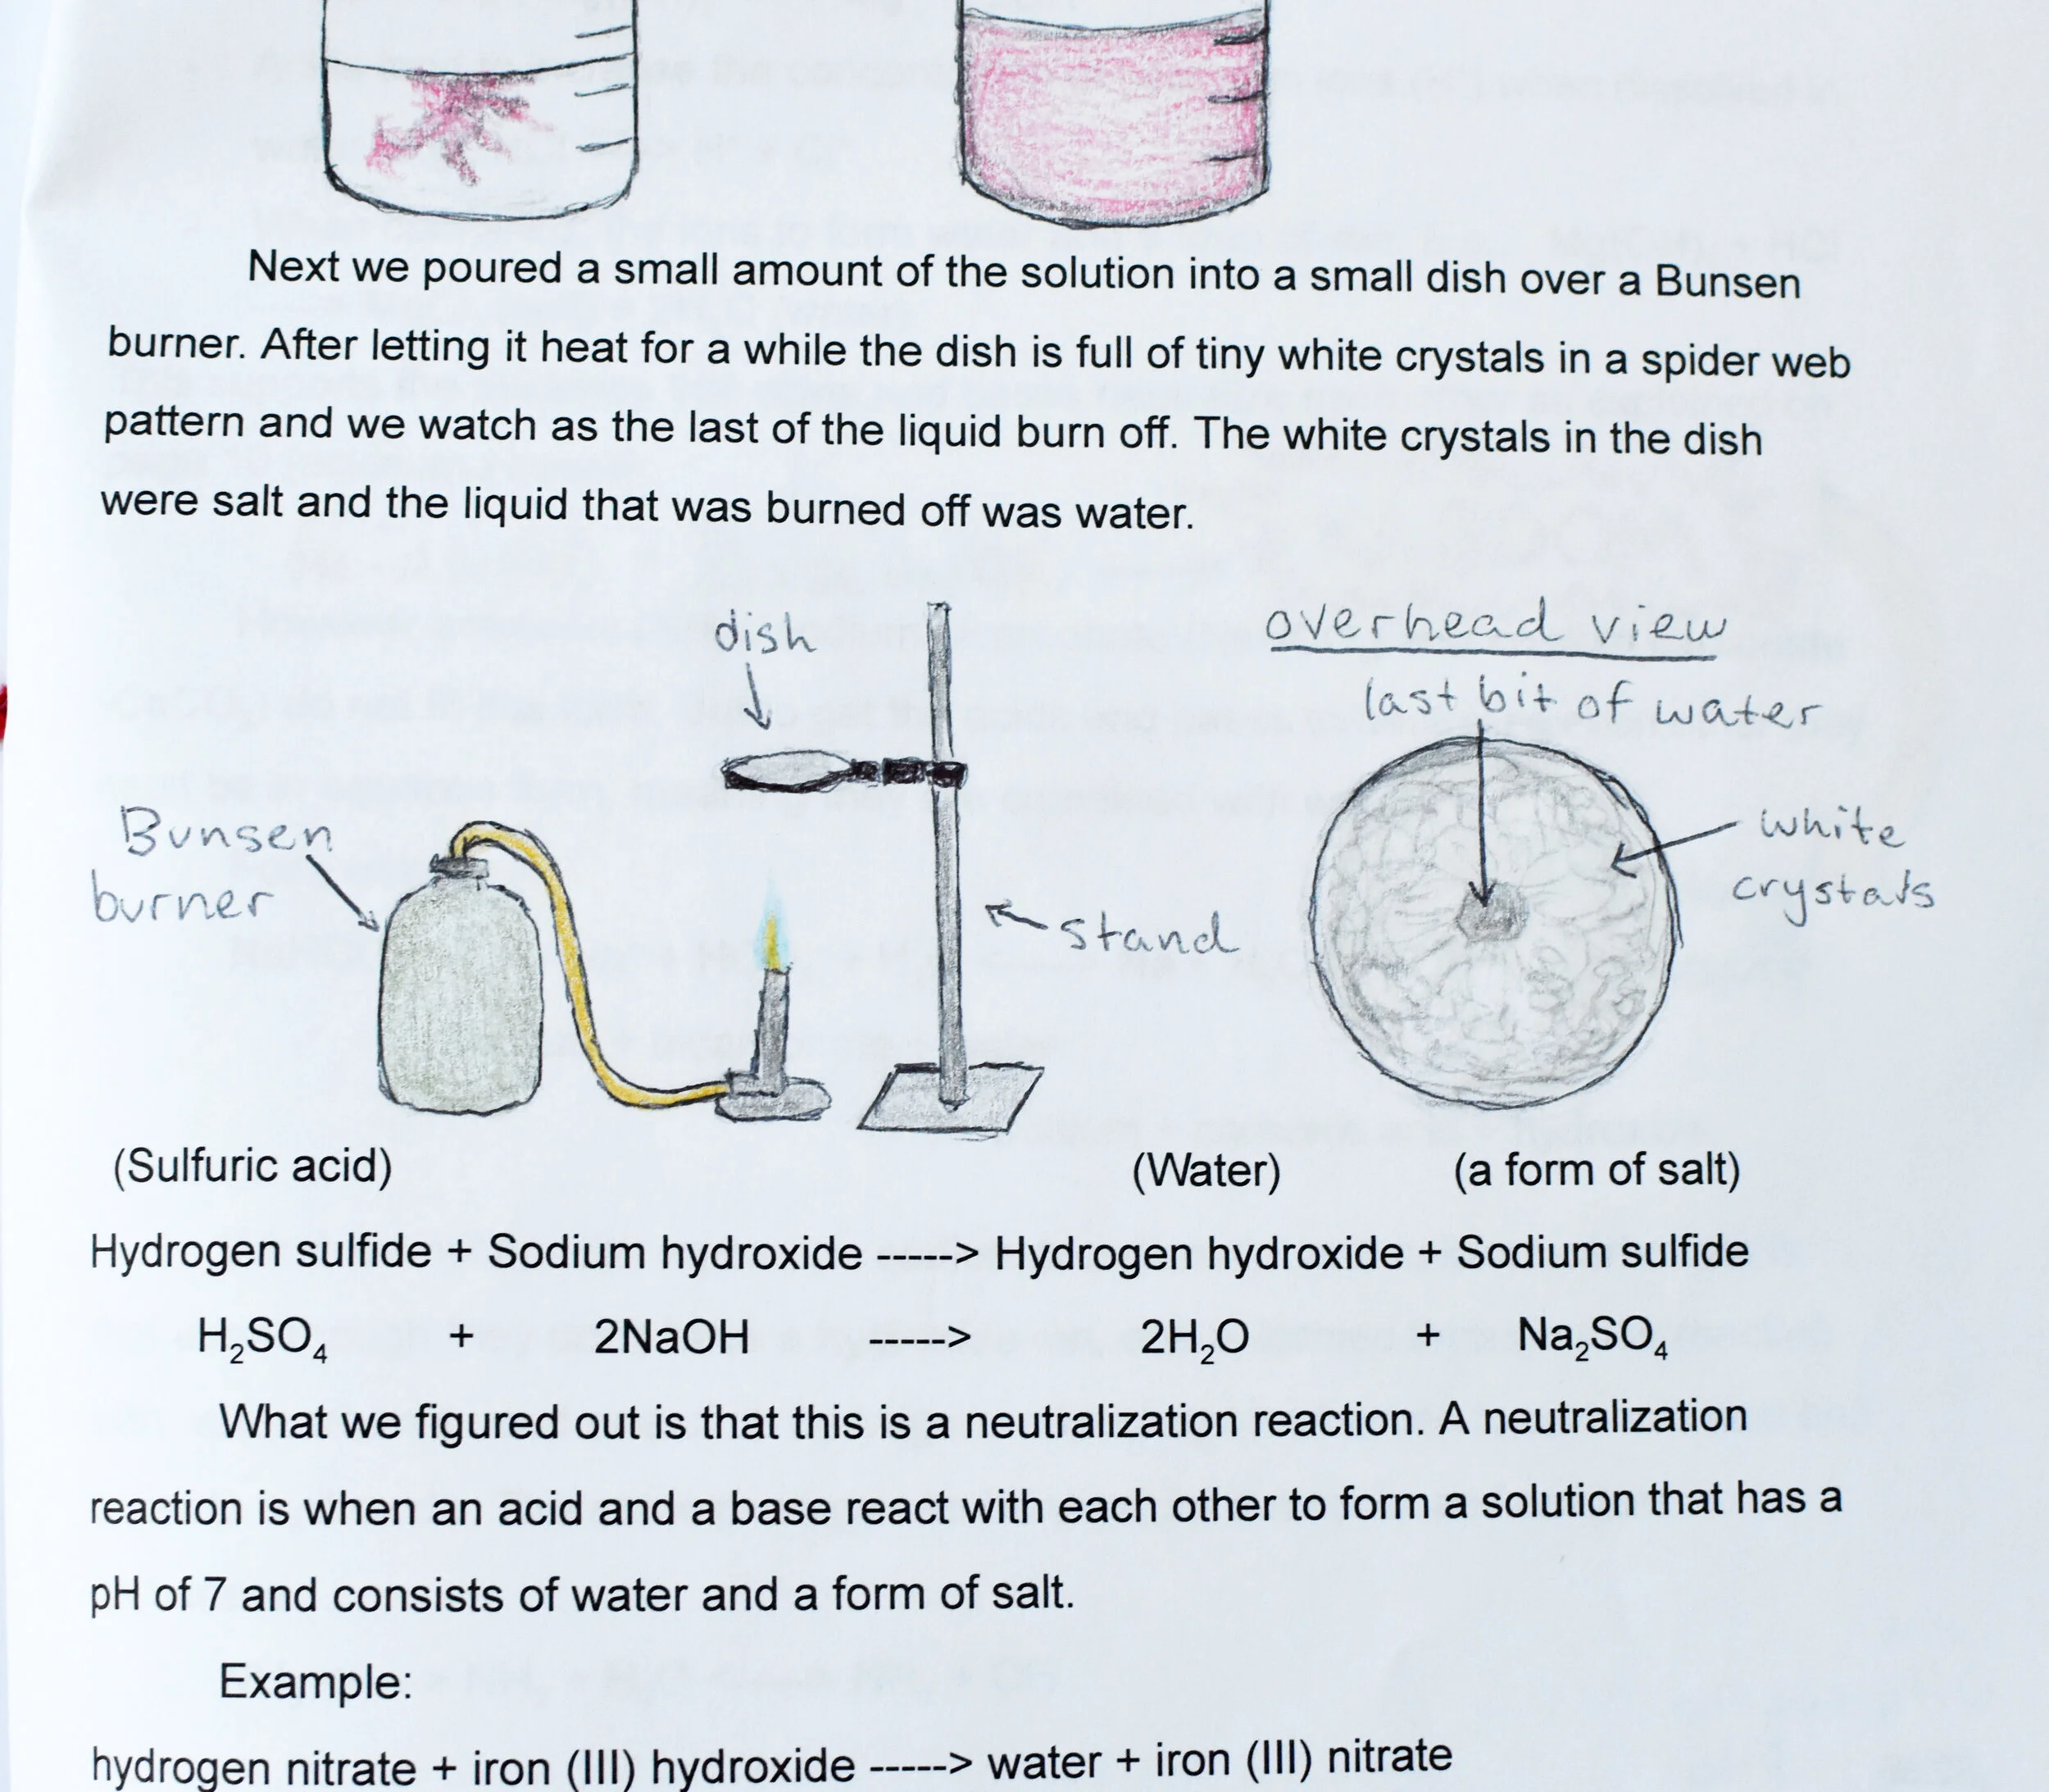 Next we poured a small amount of the solution into a small dish over a Bunsen
burner. After letting it heat for a while the dish is full of tiny white crystals in a spider web
pattern and we watch as the last of the liquid burn off. The white crystals in the dish
were salt and the liquid that was burned off was water.
dish
overhead view
last bit of water
Bunsen
burner
white
crystals
stand
(Sulfuric acid) (Water) (a form of salt)
Hydrogen sulfide + Sodium hydroxide -----> Hydrogen hydroxide + Sodium sulfide
H₂SO₄ + 2NaOH -----> 2H₂O + Na₂SO₄
What we figured out is that this is a neutralization reaction. A neutralization
reaction is when an acid and a base react with each other to form a solution that has a
pH of 7 and consists of water and a form of salt.
Example:
hydrogen nitrate + iron (III) hydroxide -----> water + iron (III) nitrate